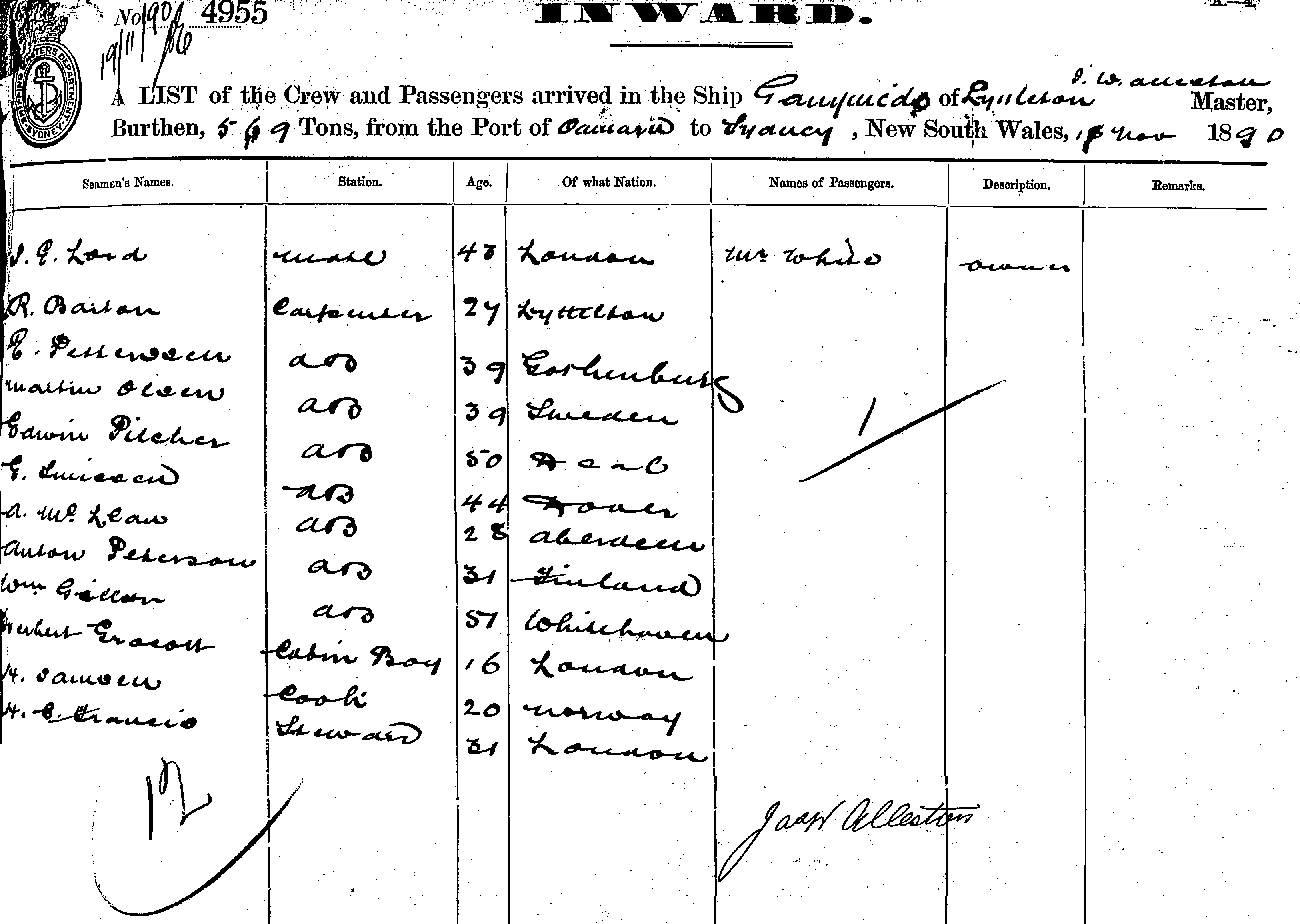 No 190/ 4955
19/11/90
INWARD.
J. W. Alleston
A LIST of the Crew and Passengers arrived in the Ship Ganymede of Lyttleton Master,
Burthen, 569 Tons, from the Port of Oamaru to Sydney, New South Wales, 18 Nov 1890
Seamen's Names. Station. Age. Of what Nation. Names of Passengers. Description. Remarks.
Lord mate 43 London Mr White owner
R. Barton Carpenter 27 Lyttelton
E. Pettersen AB 39 Gothenburg
Martin Olsen AB 39 Sweden
Edwin Pilcher AB 50 Deal
G. AB 44 Dover
A. McLean AB 28 Aberdeen
Anton Peterson AB 31 Finland
Wm Gillon AB 57 Whitehaven
Herbert Cabin Boy 16 London
H. Jansen Cook 20 Norway
H. C. Francis Steward 31 London
1
12
Jas W Alleston